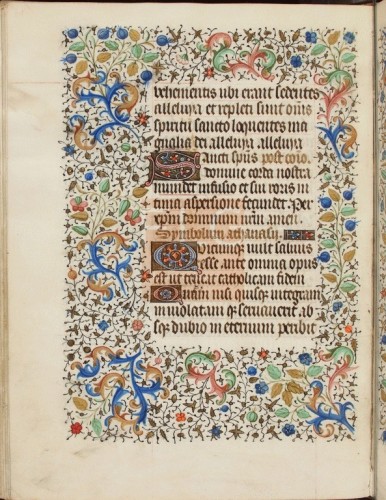 vehementis ubi erant sedentes
alleluya et repleti sunt om̄s
spiritu sancto loquentes ma
gnalia dei alleluya alleluya
Sancti spūs post cōio.
domine corda nostra
mundet infusio et sui roris in
tima aspersione fecundet. Per
xp̄m dominum n̄r̄m. amen.
Symbolum athanasij.
Quicunque vult salvus
esse. ante omnia opus
est ut teneat catholicam fidem
Quam nisi quisque integram
inviolatam qȝ servaverit. ab
sqȝ dubio in eternum peribit